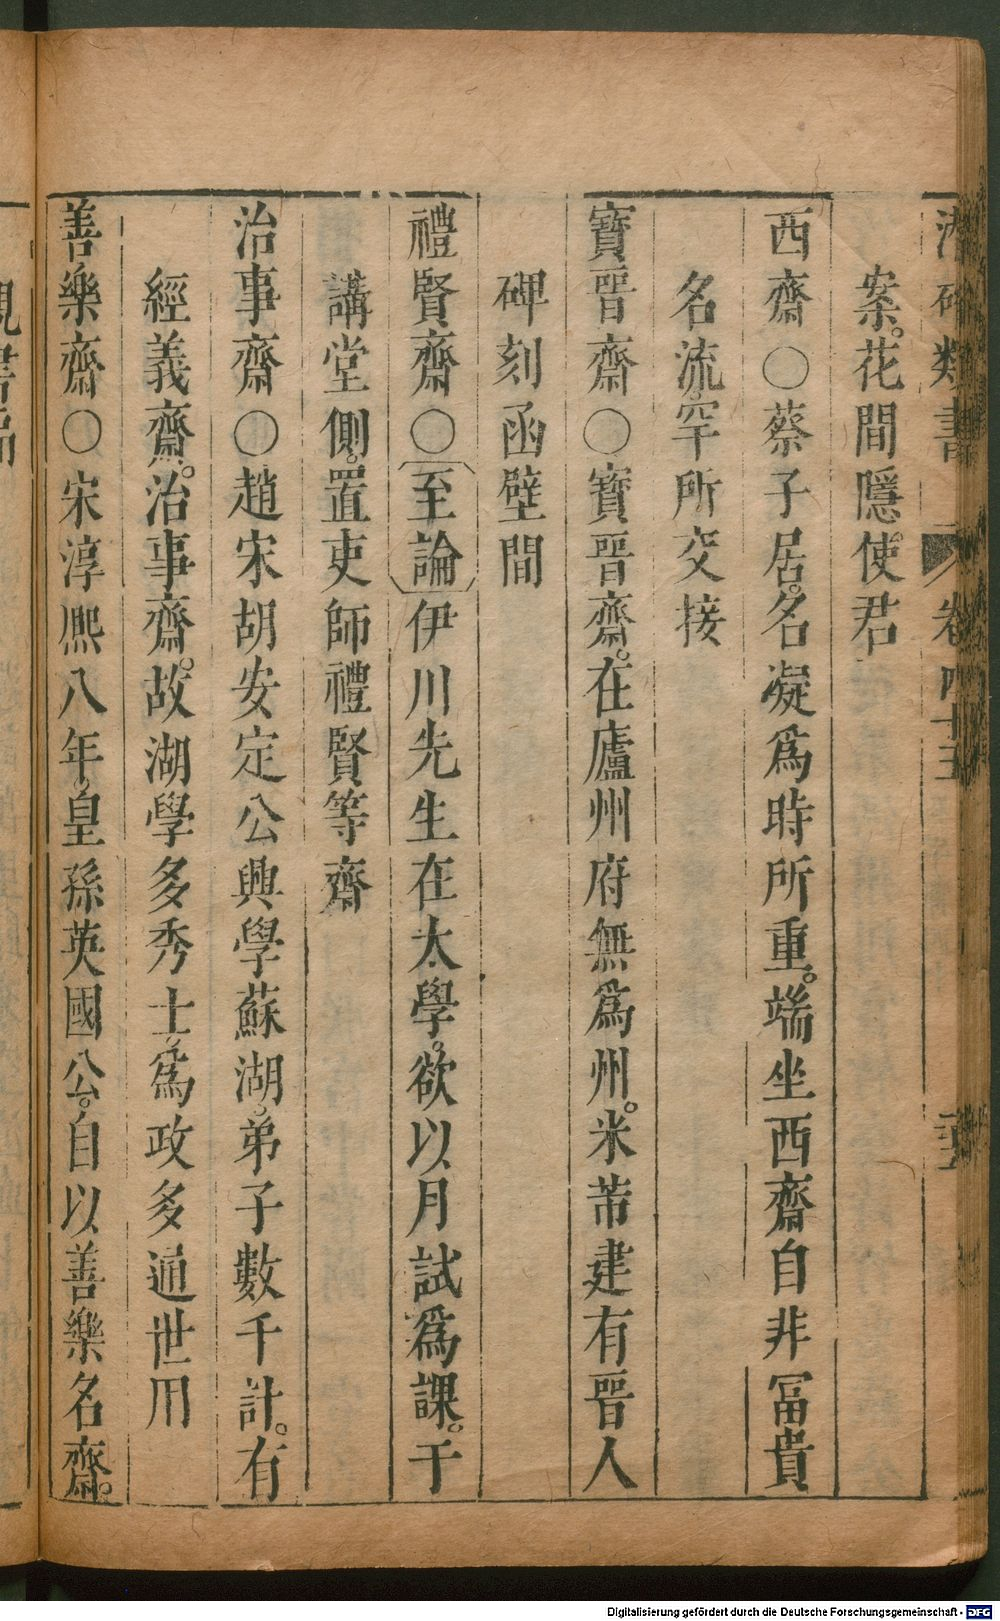 潛確類書 卷四十五
案。花間隱使君
西齋○蔡子居。名凝爲時所重。端坐西齋自非冨貴
名流。罕所交接
寳晉齋○寳晉齋。在廬州府無爲州。米芾建有晉人
碑刻函壁間
禮賢齋○至論伊川先生在太學。欲以月試爲課。于
講堂側。置吏師禮賢等齋
治事齋○趙宋胡安定公興學蘇湖。弟子數千計。有
經義齋。治事齋。故湖學多秀士。爲政多通世用
善樂齋○宋淳熈八年。皇孫英國公。自以善樂名齋。
Digitalisierung gefördert durch die Deutsche Forschungsgemeinschaft - DFG